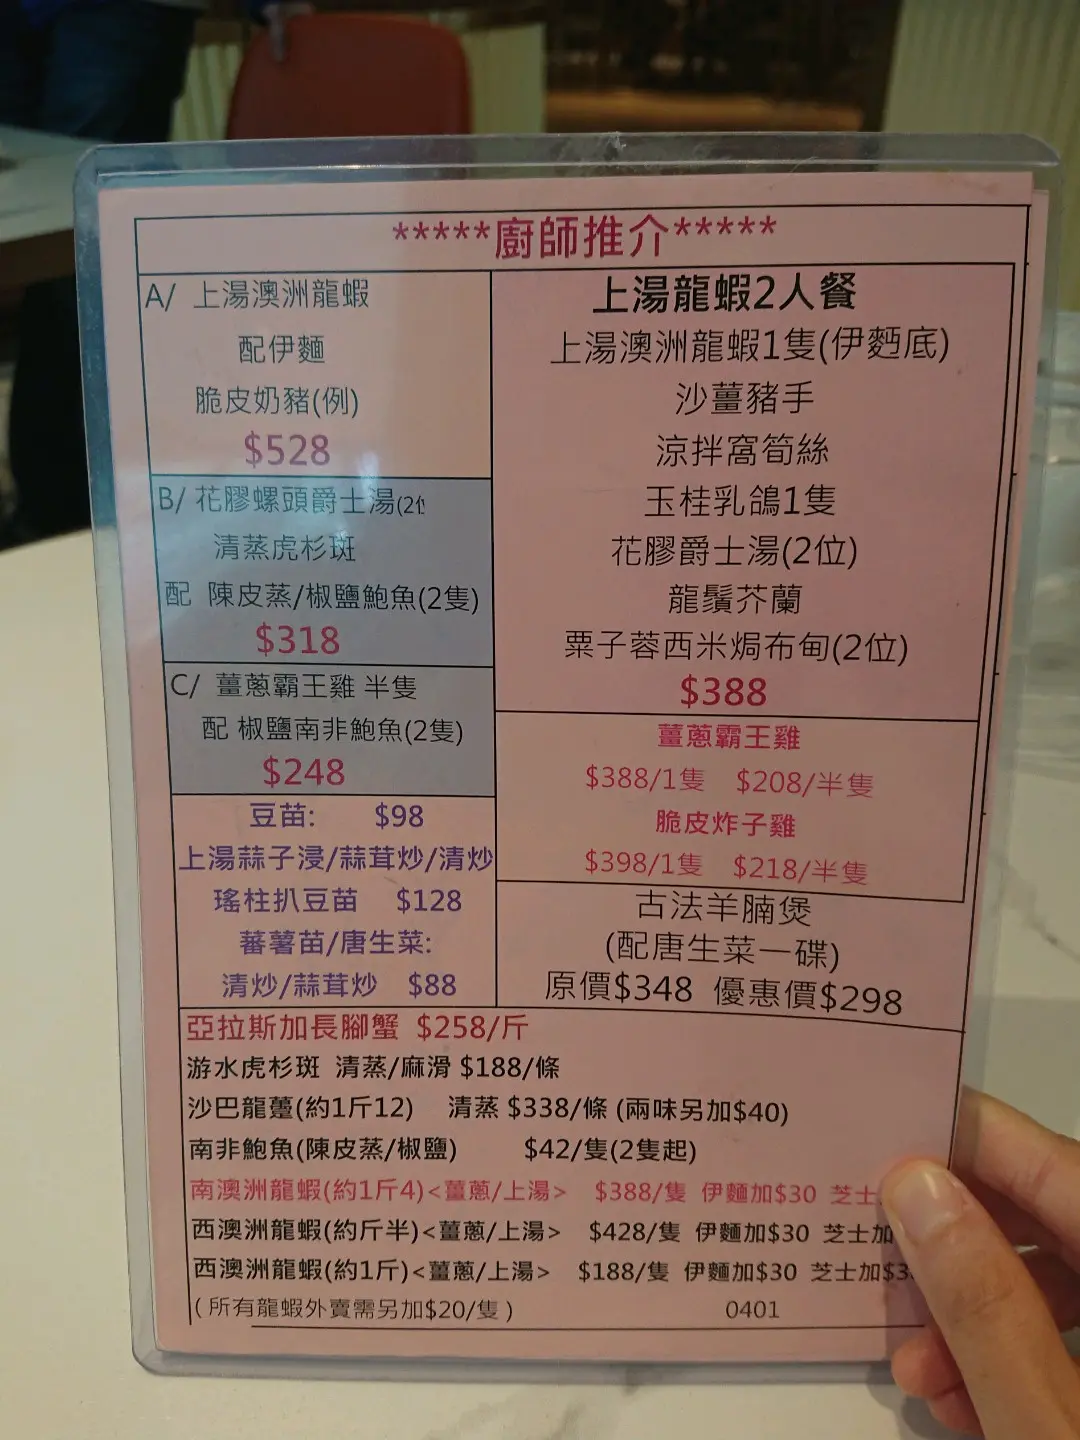 *****廚師推介*****
A/ 上湯澳洲龍蝦
配伊麵
脆皮奶豬(例)
$528
B/ 花膠螺頭爵士湯(2
清蒸虎杉斑
配 陳皮蒸/椒鹽鮑魚(2隻)
$318
C/ 薑蔥霸王雞 半隻
配 椒鹽南非鮑魚(2隻)
$248
豆苗: $98
上湯蒜子浸/蒜茸炒/清炒
瑤柱扒豆苗 $128
蕃薯苗/唐生菜:
清炒/蒜茸炒 $88
上湯龍蝦2人餐
上湯澳洲龍蝦1隻(伊麪底)
沙薑豬手
涼拌窩筍絲
玉桂乳鴿1隻
花膠爵士湯(2位)
龍鬚芥蘭
粟子蓉西米焗布甸(2位)
$388
薑蔥霸王雞
$388/1隻 $208/半隻
脆皮炸子雞
$398/1隻 $218/半隻
古法羊腩煲
(配唐生菜一碟)
原價$348 優惠價$298
亞拉斯加長腳蟹 $258/斤
游水虎杉斑 清蒸/麻滑 $188/條
沙巴龍躉(約1斤12) 清蒸 $338/條 (兩味另加$40)
南非鮑魚(陳皮蒸/椒鹽) $42/隻(2隻起)
南澳洲龍蝦(約1斤4)<薑蔥/上湯> $388/隻 伊麵加$30 芝士
西澳洲龍蝦(約斤半)<薑蔥/上湯> $428/隻 伊麵加$30 芝士加
西澳洲龍蝦(約1斤)<薑蔥/上湯> $188/隻 伊麵加$30 芝士加$3
(所有龍蝦外賣需另加$20/隻) 0401